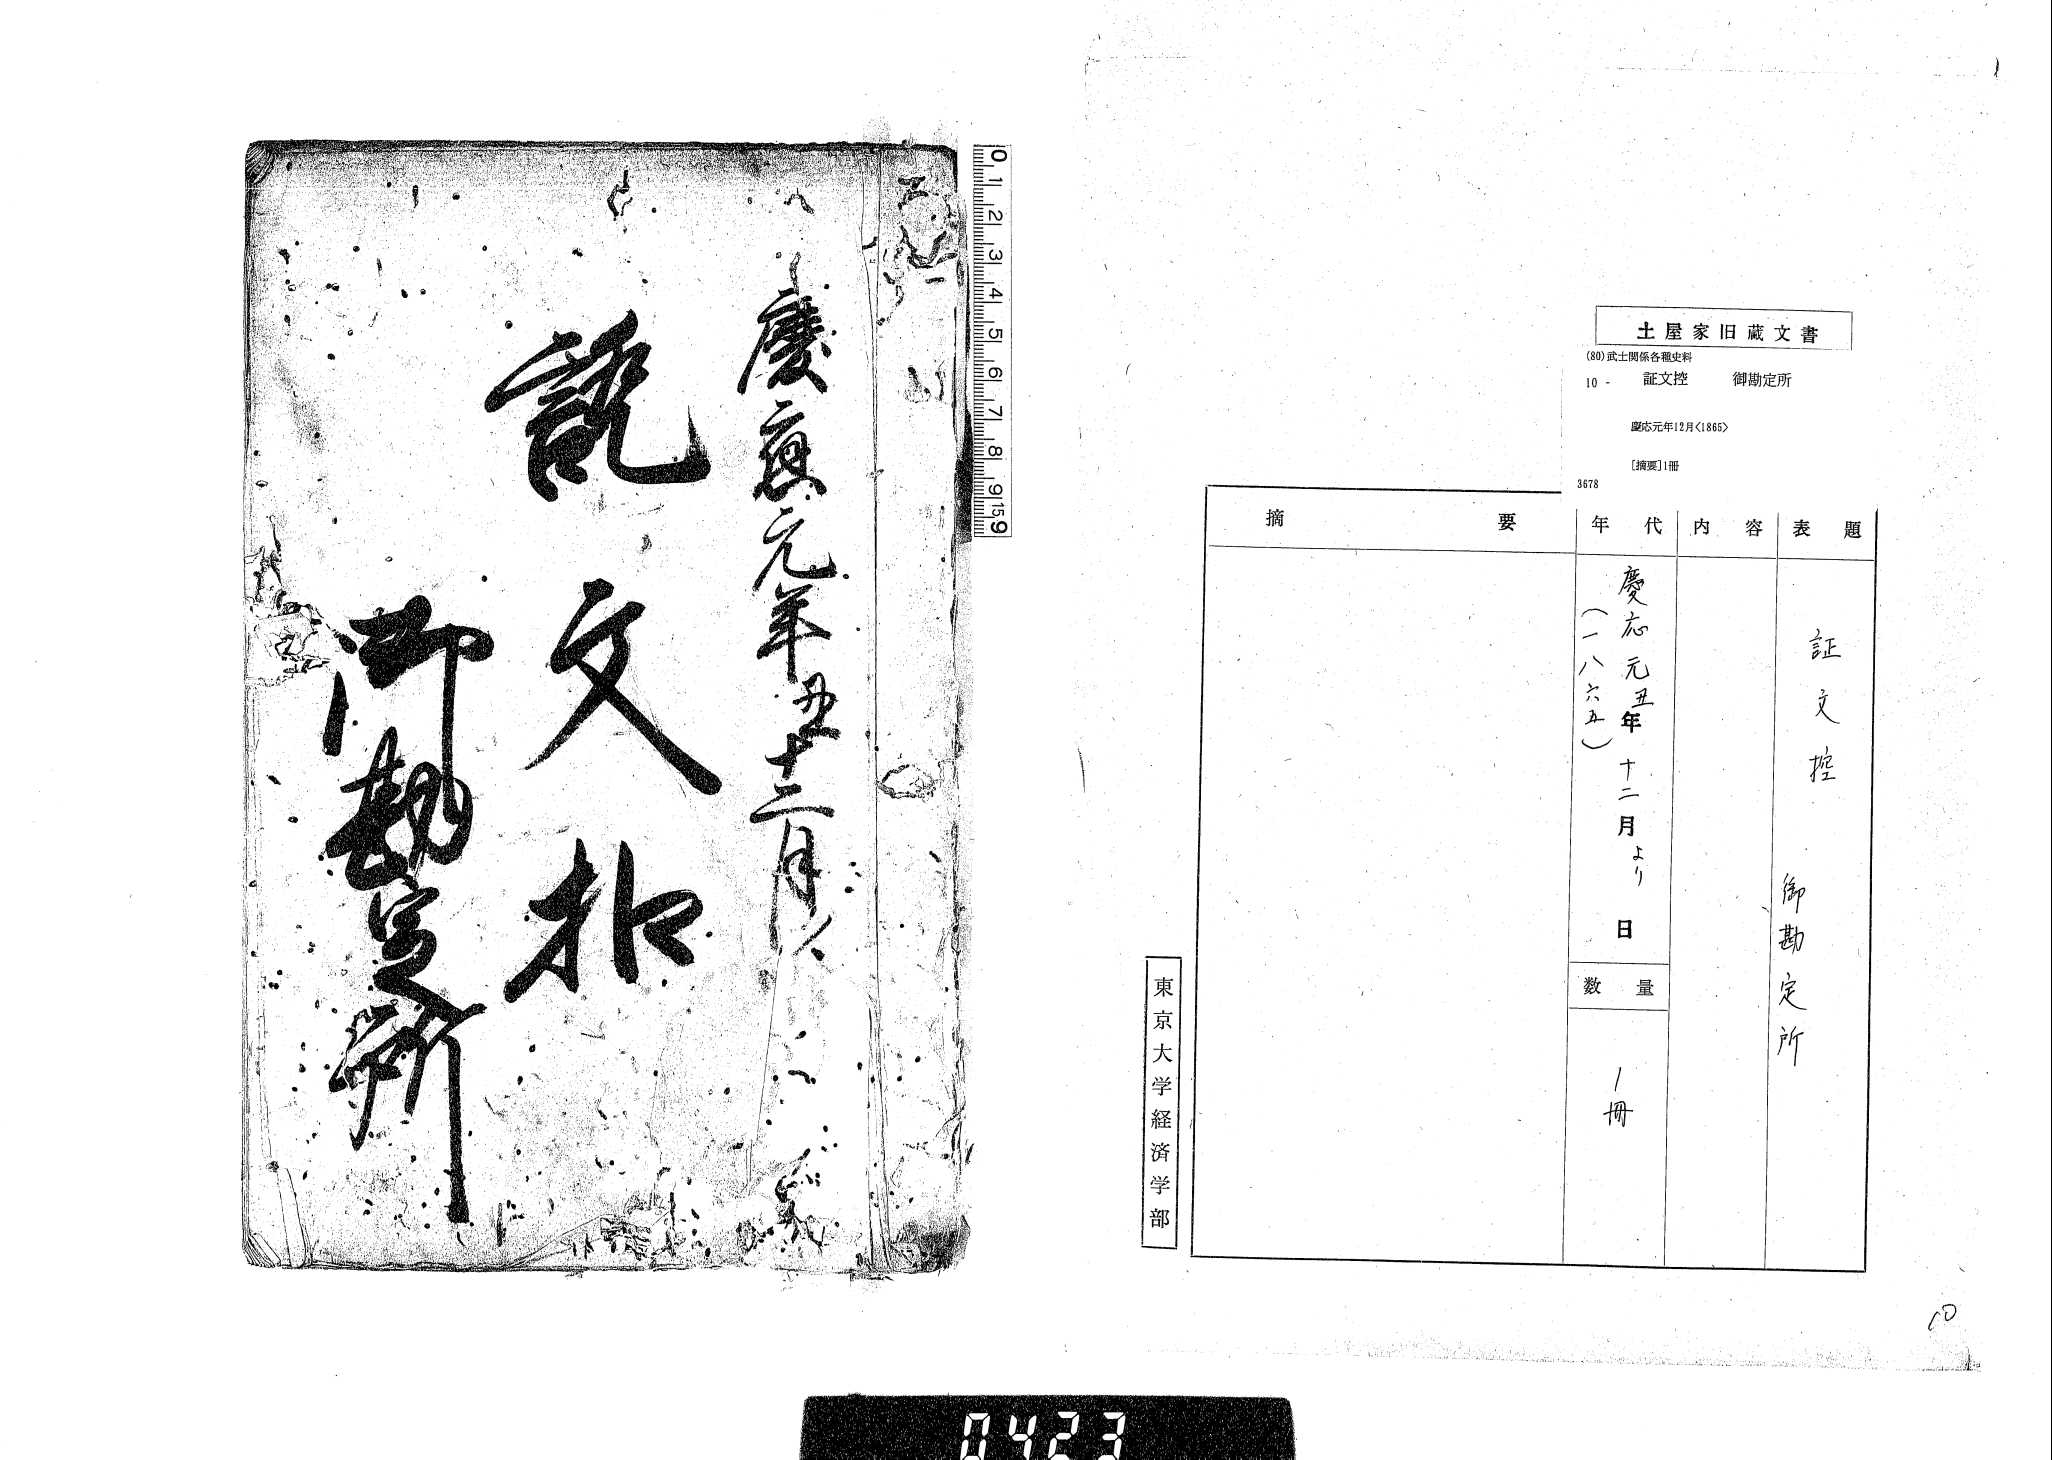 土屋家旧蔵文書
(80)武士関係各種史料
10 - 証文控 御勘定所
慶応元年12月<1865>
[摘要]1冊
3678
表題
証文控 御勘定所
内容
年代
慶応元丑年十二月より 日
(一八六五)
数量
1冊
摘要
東京大学経済学部
10
慶應元年丑十二月ゟ
證文扣
御勘定所
0 1 2 3 4 5 6 7 8 9 15 9
0423